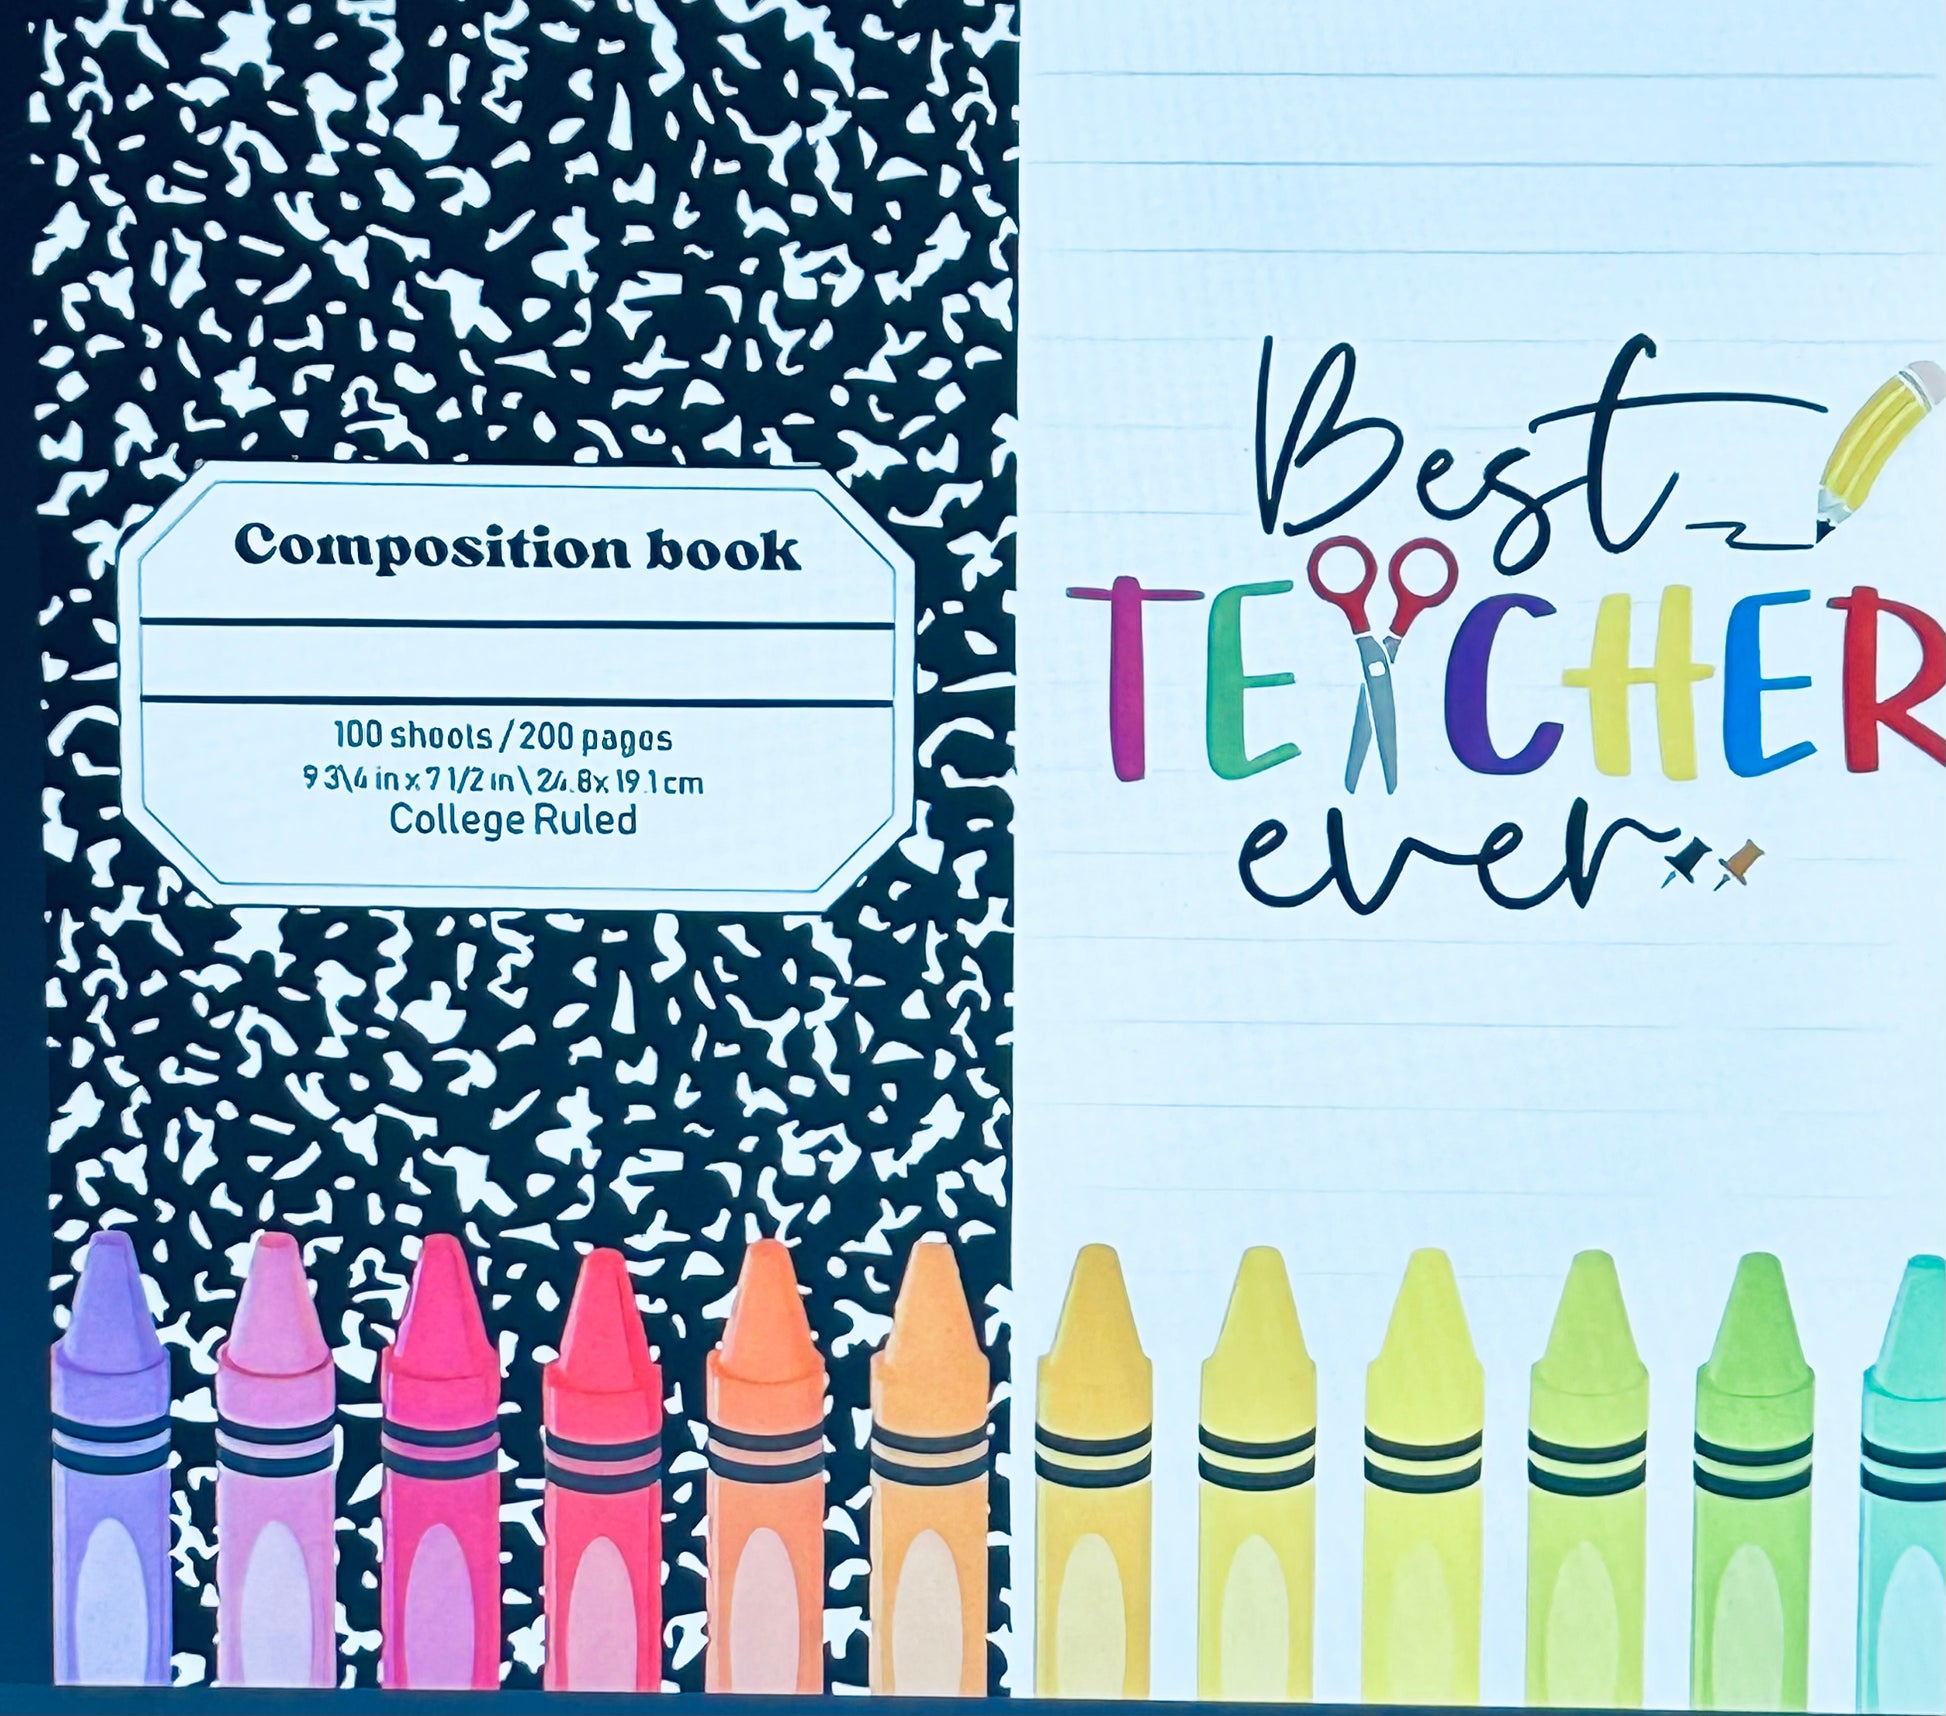 Composition book
100 shoots / 200 pagos
9 3\4 in x 7 1/2 in \ 24.8x 19.1 cm
College Ruled
Best
TEACHER
ever